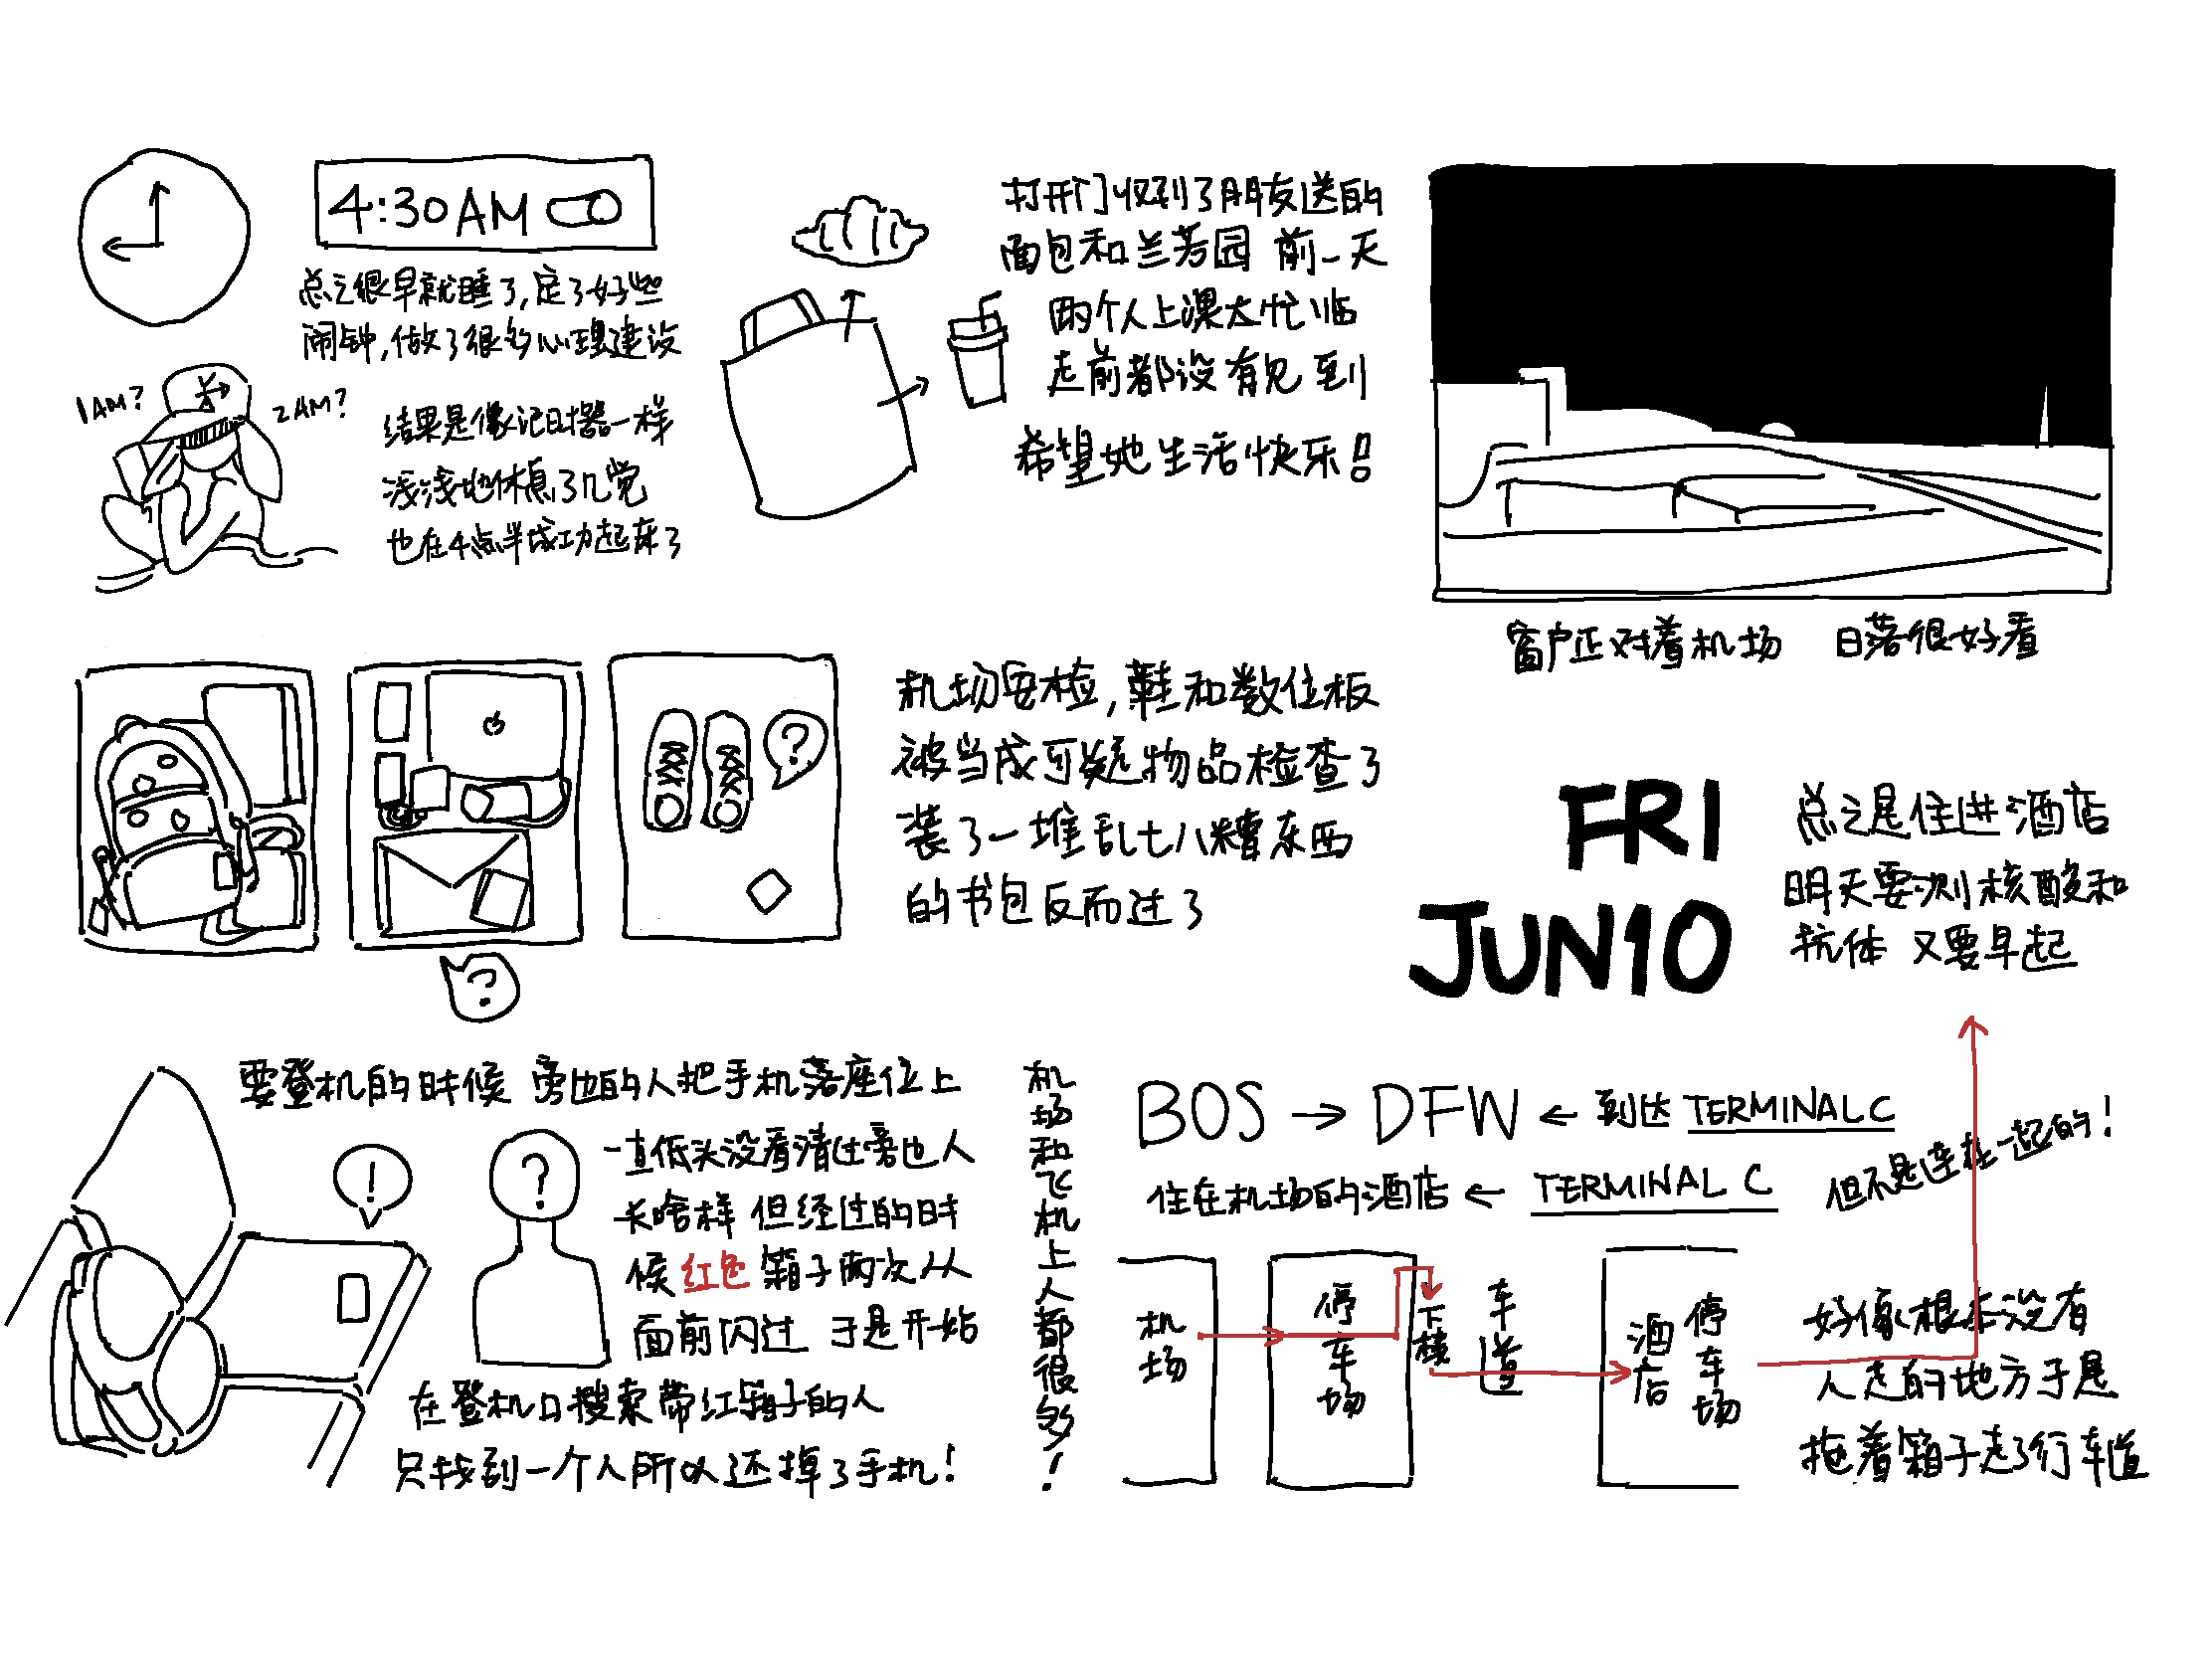 4:30AM
总之很早就睡了,定了好些
闹钟,做了很多心理建设
1AM?
2AM?
结果是像记时器一样
浅浅地休息了几觉
也在4点半成功起来了
打开门收到了朋友送的
面包和兰芳园 前一天
两个人上课太忙临
走前都没有见到
希望她生活快乐!
窗户正对着机场 日落很好看
?
?
机场安检,鞋和数位板
被当成可疑物品检查了
装了一堆乱七八糟东西
的书包反而过了
FRI
JUN10
总之是住进酒店
明天要测核酸和
抗体 又要早起
要登机的时候 旁边的人把手机落座位上
!
?
一直低头没看清过旁边人
长啥样 但经过的时
候红色箱子两次从
面前闪过 于是开始
在登机口搜索带红箱子的人
只找到一个人所以还掉了手机!
机场和飞机上人都很多!
BOS → DFW ← 到达 TERMINAL C
住在机场的酒店 ← TERMINAL C
但不是连在一起的!
机场
停车场
下楼
车道
酒店
停车场
好像根本没有
人走的地方于是
拖着箱子走了行车道